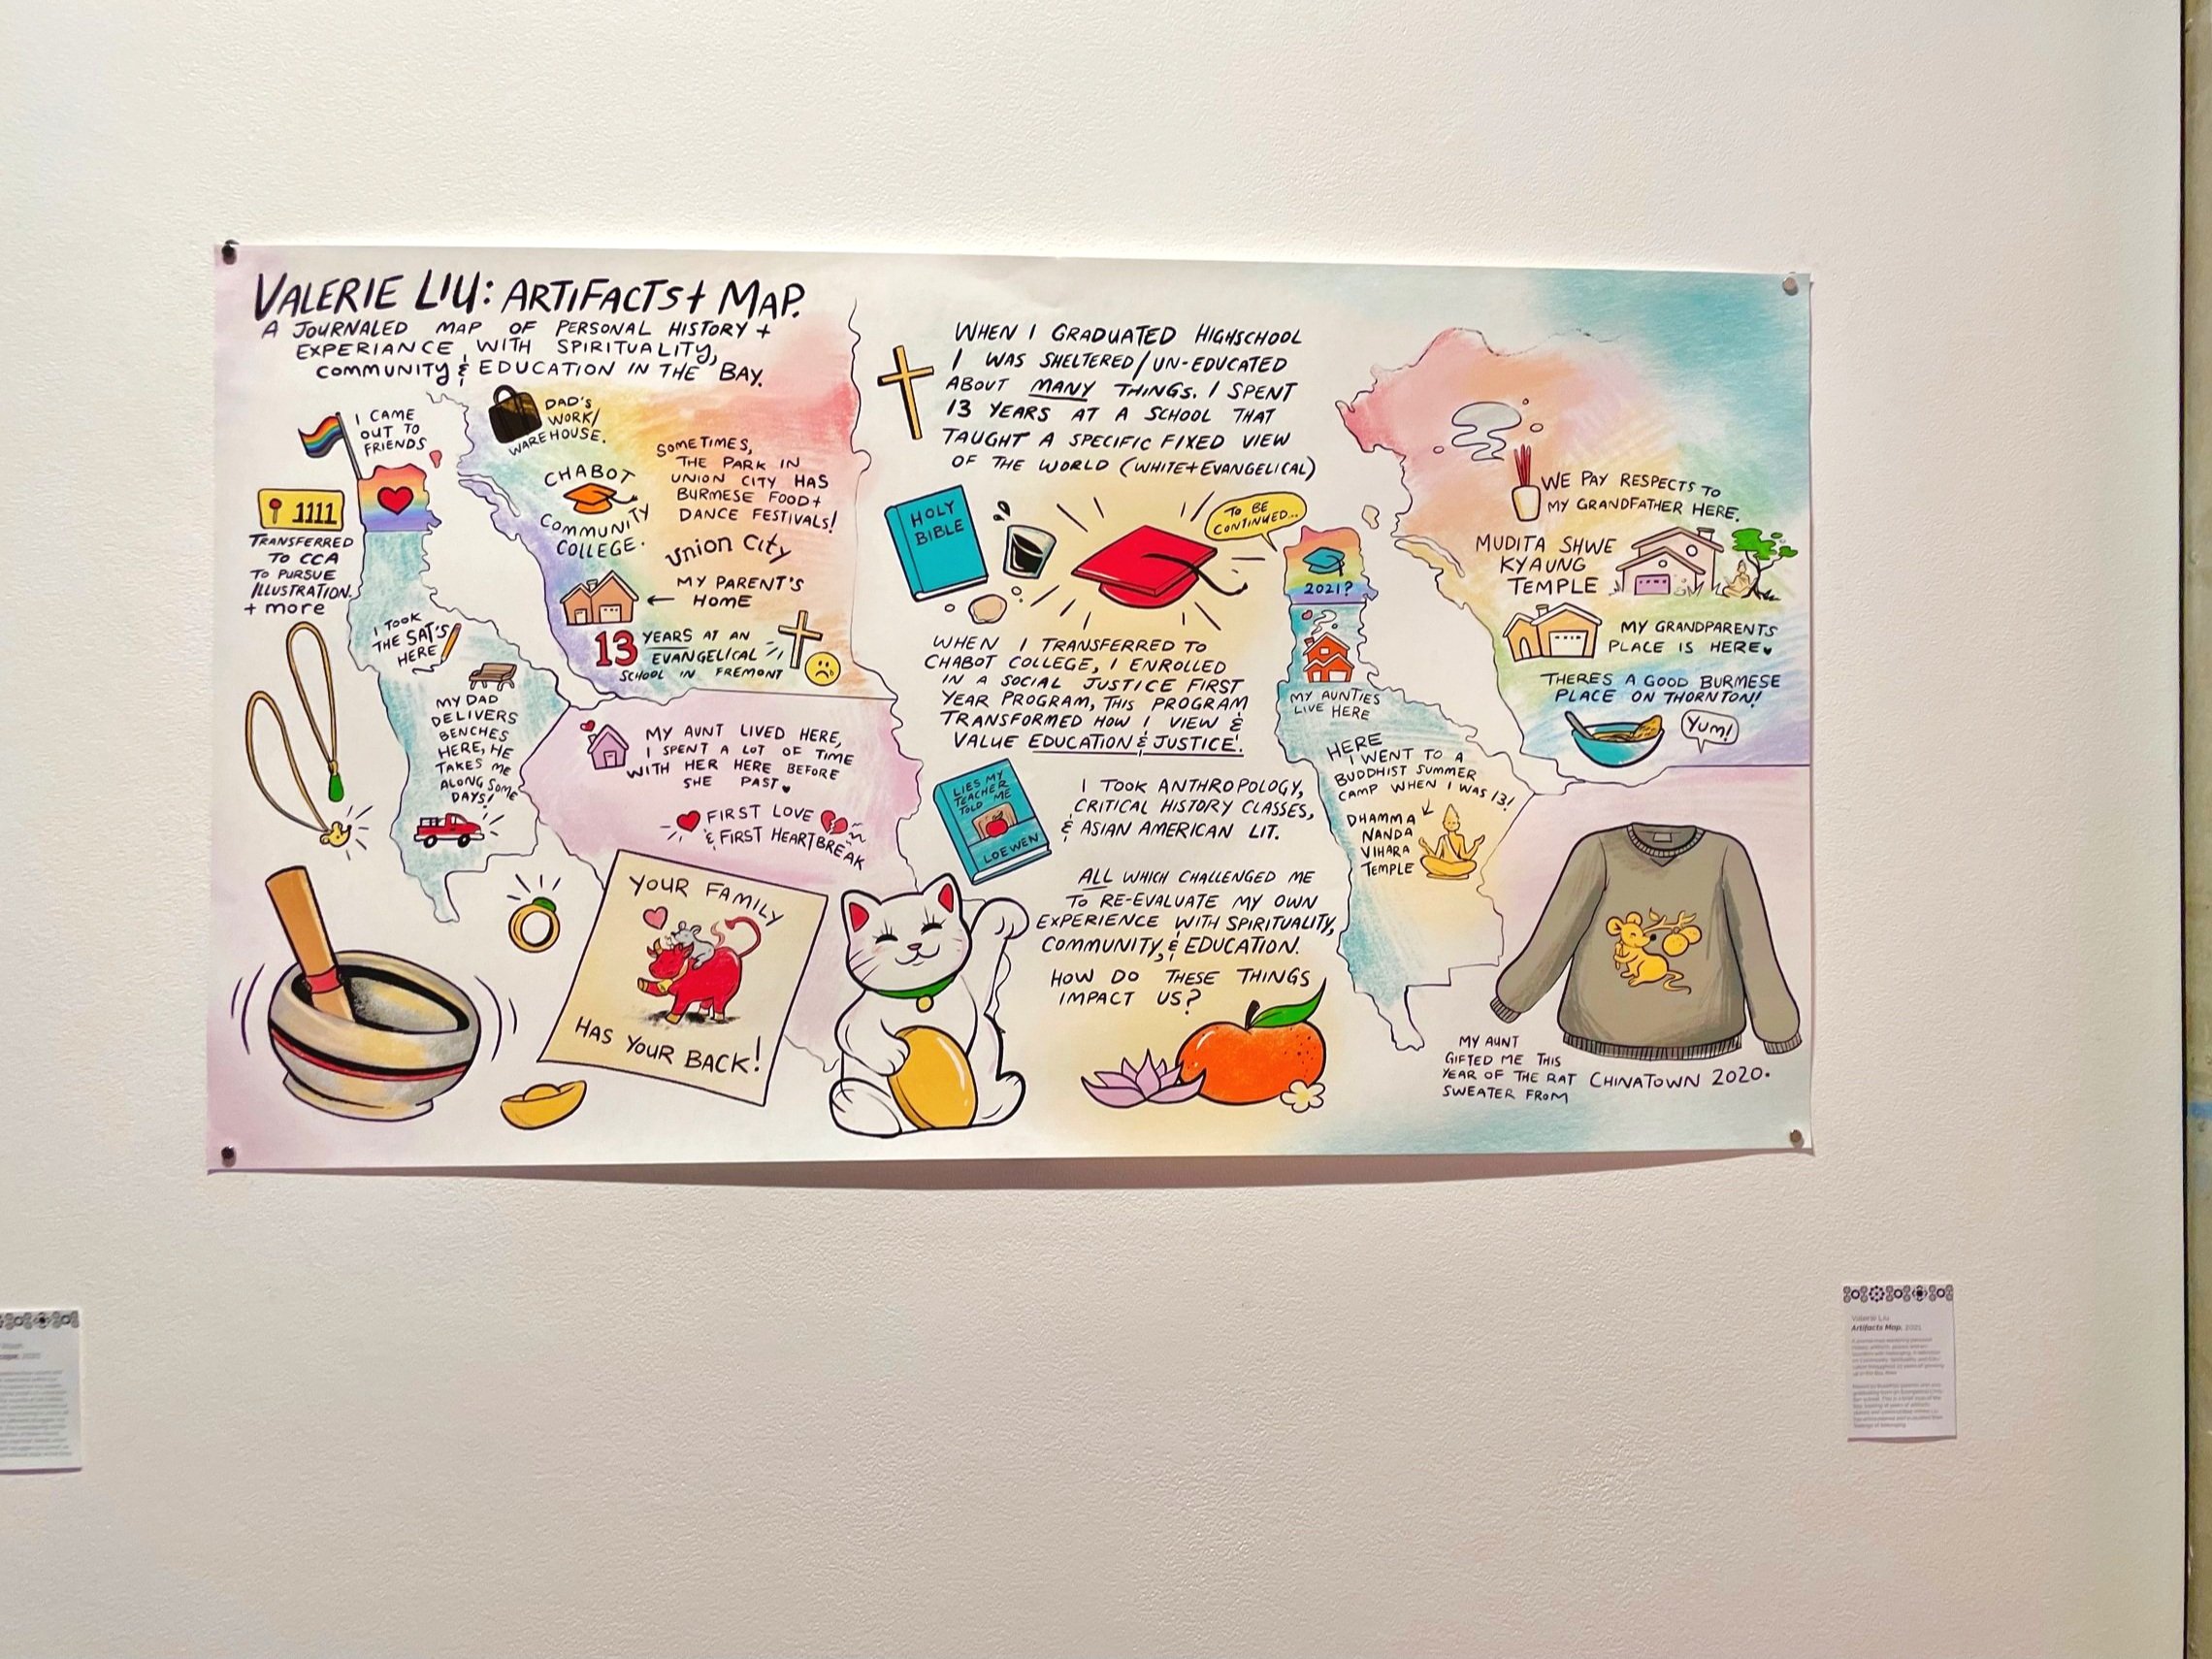 VALERIE LIU: ARTIFACTS + MAP.
A JOURNALED MAP OF PERSONAL HISTORY +
EXPERIANCE WITH SPIRITUALITY,
COMMUNITY & EDUCATION IN THE BAY.
I CAME
OUT TO
FRIENDS
1111
TRANSFERRED
TO CCA
TO PURSUE
ILLUSTRATION.
+ more
I TOOK
THE SAT'S
HERE
MY DAD
DELIVERS
BENCHES
HERE, HE
TAKES ME
ALONG SOME
DAYS!
DAD'S
WORK/
WAREHOUSE.
CHABOT
COMMUNITY
COLLEGE.
SOMETIMES,
THE PARK IN
UNION CITY HAS
BURMESE FOOD +
DANCE FESTIVALS!
Union City
MY PARENT'S
HOME
13 YEARS AT AN
EVANGELICAL
SCHOOL IN FREMONT
MY AUNT LIVED HERE,
I SPENT A LOT OF TIME
WITH HER HERE BEFORE
SHE PAST.
FIRST LOVE
& FIRST HEARTBREAK
YOUR FAMILY
HAS YOUR BACK!
WHEN I GRADUATED HIGHSCHOOL
I WAS SHELTERED/UN-EDUCATED
ABOUT MANY THINGS. I SPENT
13 YEARS AT A SCHOOL THAT
TAUGHT A SPECIFIC FIXED VIEW
OF THE WORLD (WHITE + EVANGELICAL)
HOLY
BIBLE
TO BE
CONTINUED...
WHEN I TRANSFERRED TO
CHABOT COLLEGE, I ENROLLED
IN A SOCIAL JUSTICE FIRST
YEAR PROGRAM, THIS PROGRAM
TRANSFORMED HOW I VIEW &
VALUE EDUCATION & JUSTICE.
LIES MY
TEACHER
TOLD ME
LOEWEN
I TOOK ANTHROPOLOGY,
CRITICAL HISTORY CLASSES,
& ASIAN AMERICAN LIT.
ALL WHICH CHALLENGED ME
TO RE-EVALUATE MY OWN
EXPERIENCE WITH SPIRITUALITY,
COMMUNITY, & EDUCATION.
HOW DO THESE THINGS
IMPACT US?
2021?
MY AUNTIES
LIVE HERE
HERE
I WENT TO A
BUDDHIST SUMMER
CAMP WHEN I WAS 13!
DHAMMA
NANDA
VIHARA
TEMPLE
WE PAY RESPECTS TO
MY GRANDFATHER HERE.
MUDITA SHWE
KYAUNG
TEMPLE
MY GRANDPARENTS
PLACE IS HERE
THERES A GOOD BURMESE
PLACE ON THORNTON!
Yum!
MY AUNT
GIFTED ME THIS
YEAR OF THE RAT
SWEATER FROM
CHINATOWN 2020.
Valerie Liu
Artifacts Map, 2021